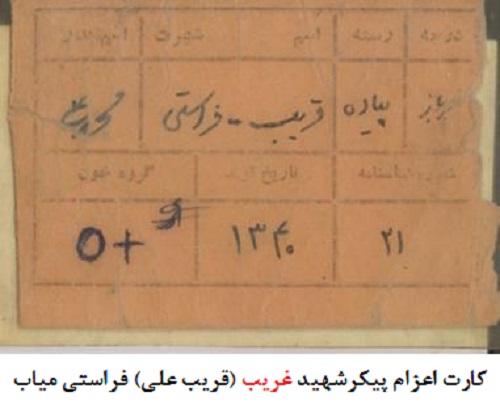 درجه رسته اسم شهرت
سرباز پیاده قریب - فراستی
شماره شناسنامه تاریخ تولد گروه خون
۲۱ ۱۳۴۰ O+
کارت اعزام پیکرشهید غریب (قریب علی) فراستی میاب